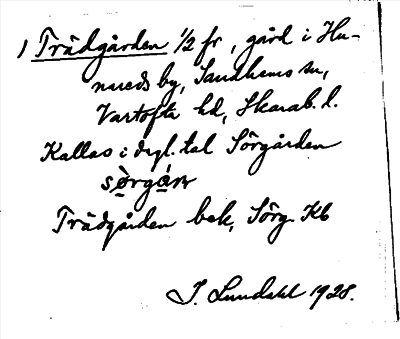 1 Trädgården 1/2 fr, gård i Hu-
nareds by, Sandhems sn,
Vartofta hd, Skarab. l.
Kallas i dagl. tal Sörgården
Trädgården bek, Sörg. Kb
I. Lundahl 1928.